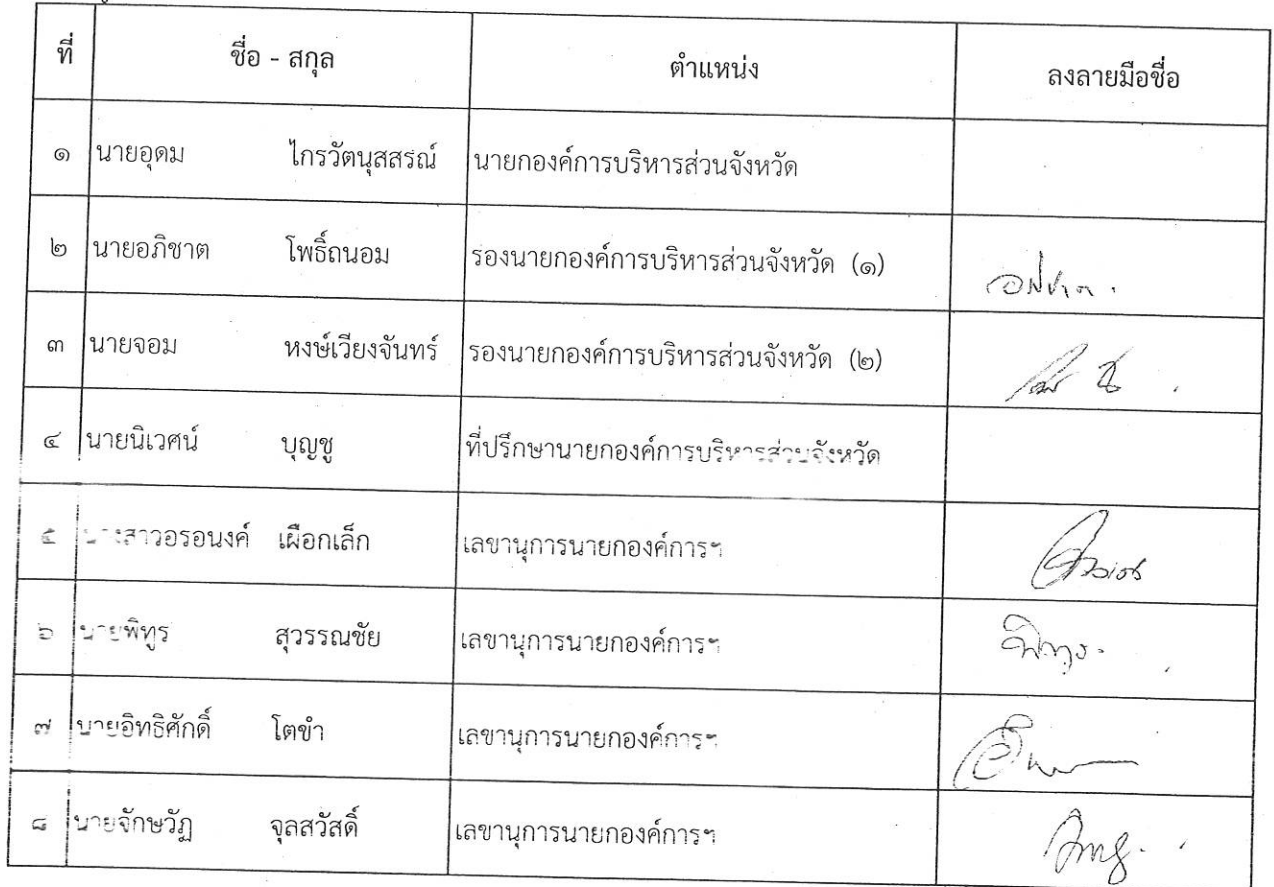 ที่ ชื่อ - สกุล ตำแหน่ง ลงลายมือชื่อ
๑ นายอุดม ไกรวัตนุสสรณ์ นายกองค์การบริหารส่วนจังหวัด
๒ นายอภิชาต โพธิ์ถนอม รองนายกองค์การบริหารส่วนจังหวัด (๑) อภิชาต
๓ นายจอม หงษ์เวียงจันทร์ รองนายกองค์การบริหารส่วนจังหวัด (๒)
๔ นายนิเวศน์ บุญชู ที่ปรึกษานายกองค์การบริหารส่วนจังหวัด
๕ นางสาวอรอนงค์ เผือกเล็ก เลขานุการนายกองค์การฯ
๖ นายพิทูร สุวรรณชัย เลขานุการนายกองค์การฯ พิทูร
๗ นายอิทธิศักดิ์ โตขำ เลขานุการนายกองค์การฯ
๘ นายจักษวัฏ จุลสวัสดิ์ เลขานุการนายกองค์การฯ